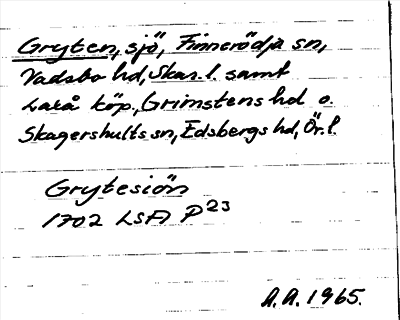 Gryten, sjö, Finnerödja sn,
Vadsbo hd, Skar. l. samt
Laxå köp., Grimstens hd o.
Skagershults sn, Edsbergs hd, Ör. l.
Grytesiön
1702 LSA P23
A.A. 1965.